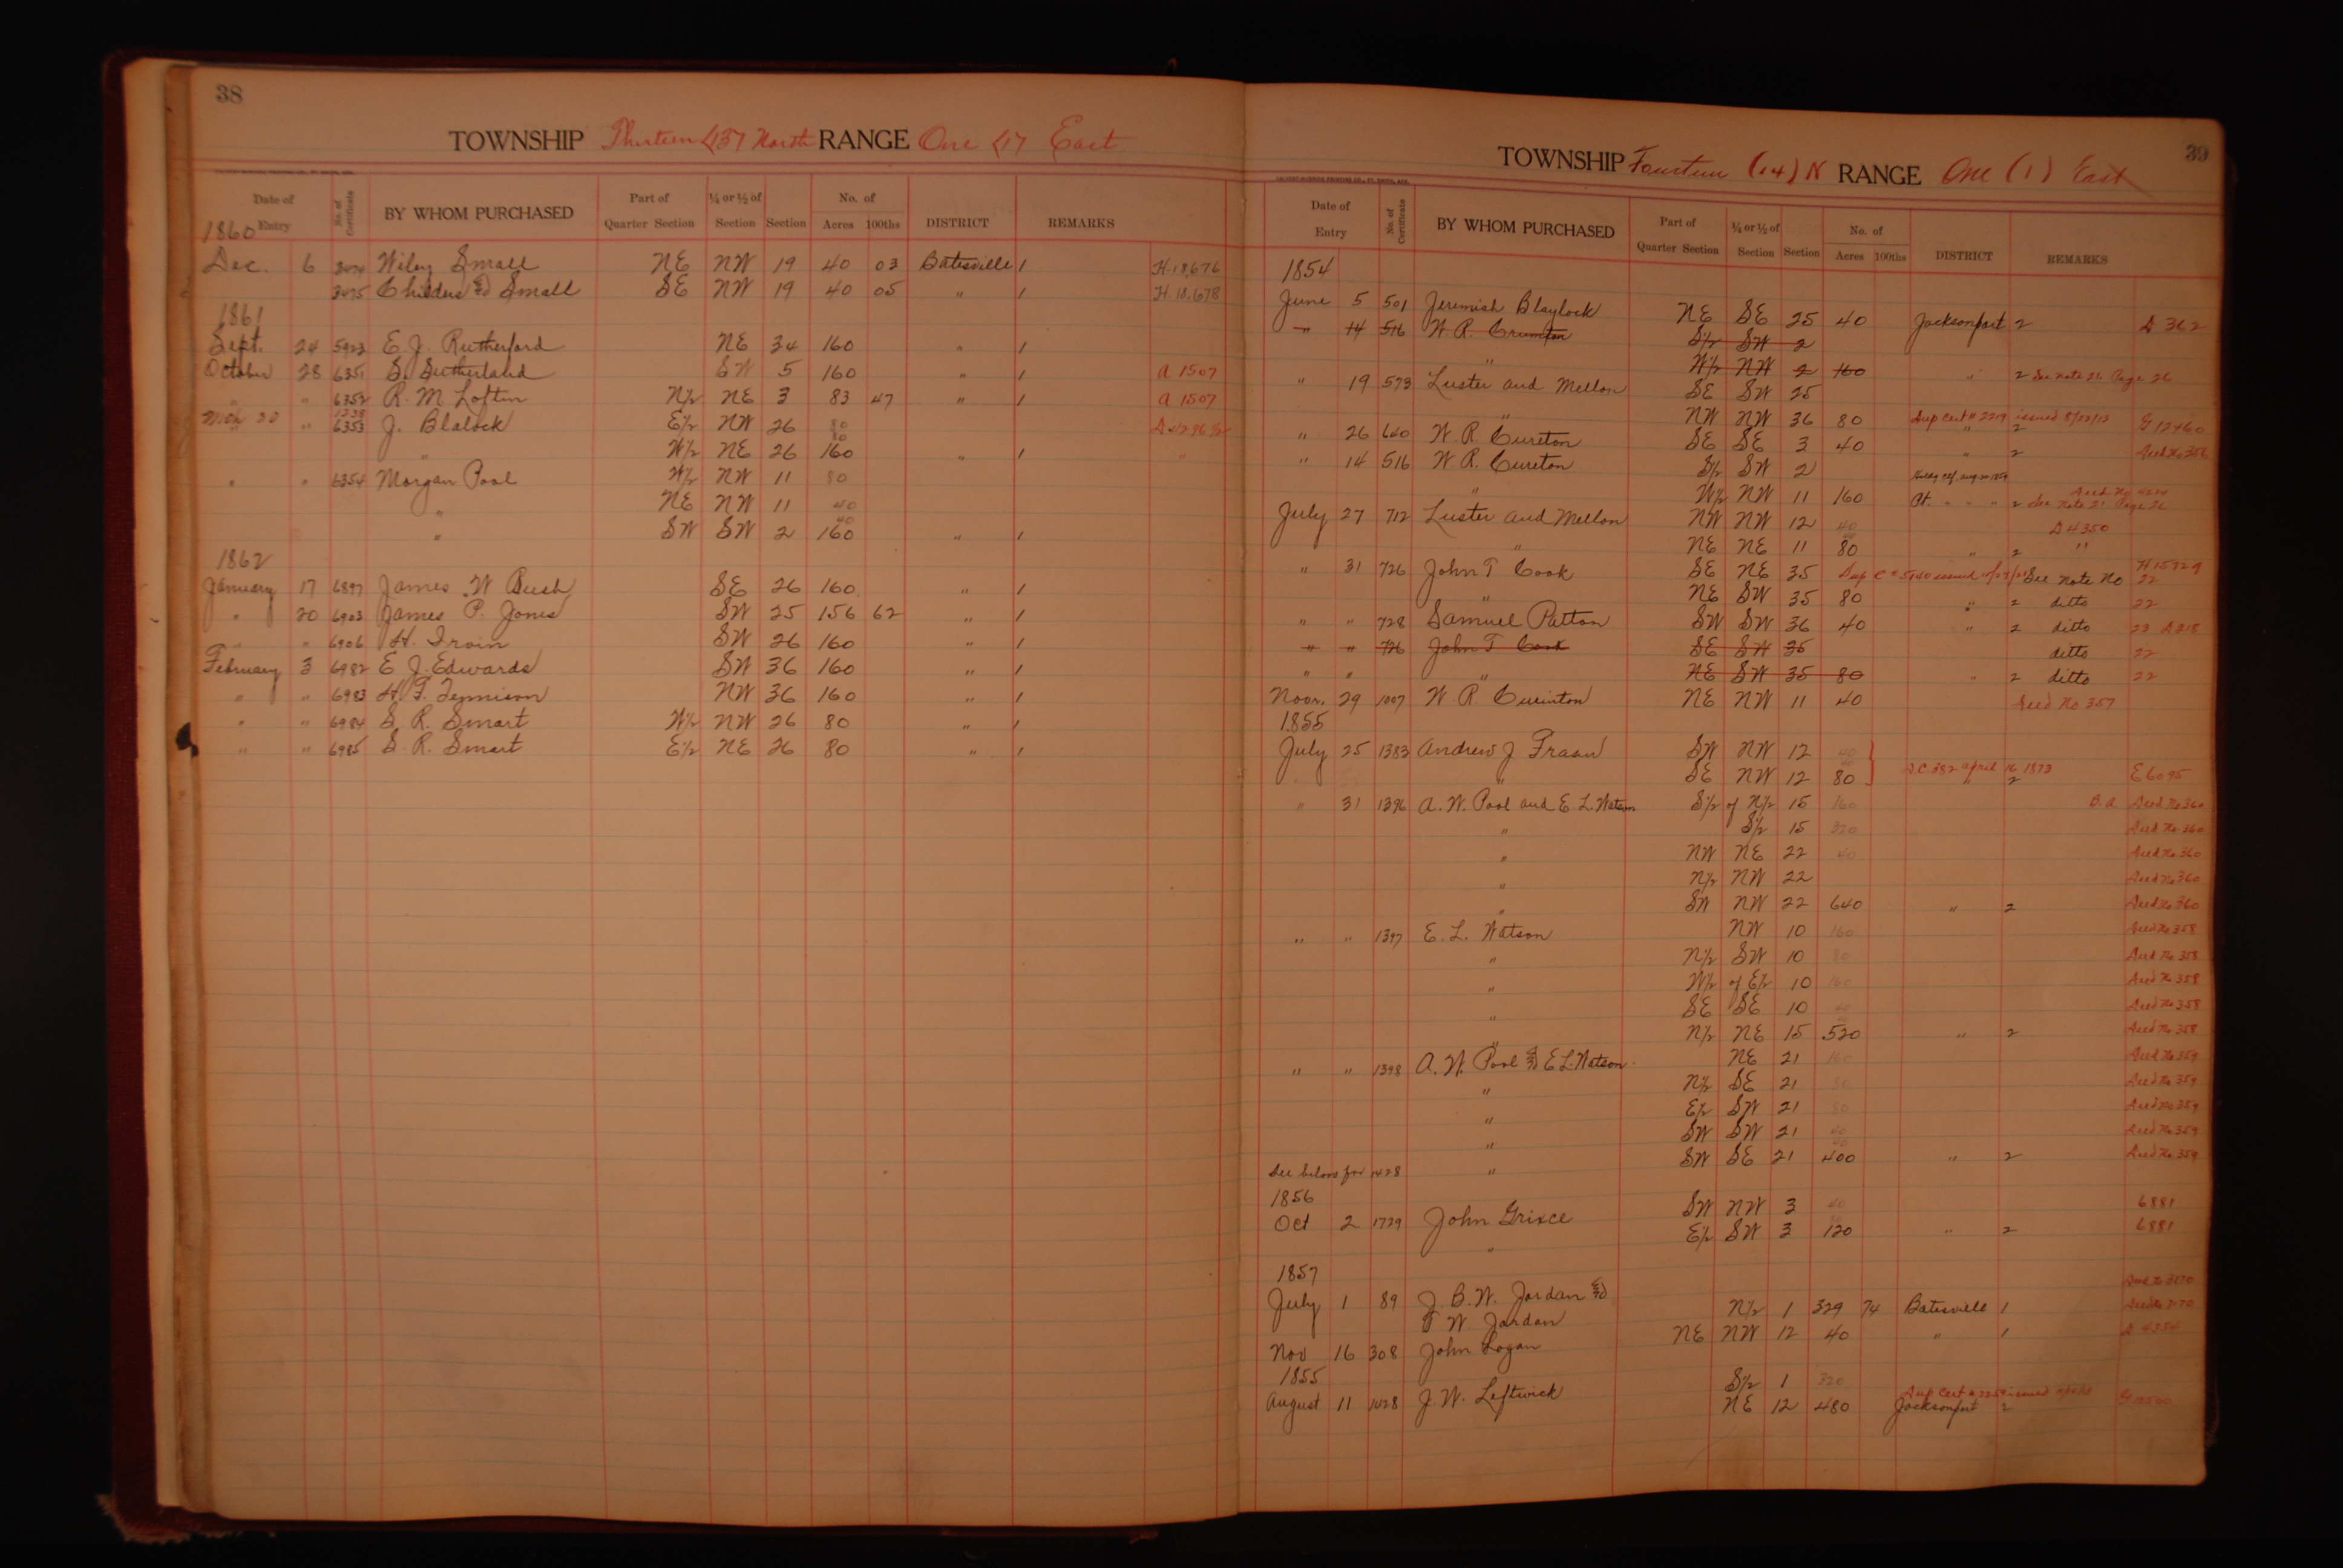 38
TOWNSHIP Thirteen (13) North RANGE One (1) East
Date of Entry No. of Certificate BY WHOM PURCHASED Part of Quarter Section ¼ or ½ of Section Section No. of Acres 100ths DISTRICT REMARKS
1860
Dec. 6 3474 Wiley Small NE NW 19 40 03 Batesville 1 H.18,676
3475 Childers & Small SE NW 19 40 05 " 1 H.18,678
1861
Sept. 24 5923 E. J. Rutherford NE 34 160 " 1
October 28 6351 S. Sutherland SW 5 160 " 1 A 1507
" " 6352 R. M. Loftin N½ NE 3 83 47 " 1 A 1507
" 6353 J. Blalock E½ NW 26 80
" W½ NE 26 160 " 1 "
" " 6354 Morgan Pool W½ NW 11 80
" NE NW 11 40
" SW SW 2 160 " 1
1862
January 17 6897 James W Bush SE 26 160 " 1
" 20 6903 James P. Jones SW 25 156 62 " 1
" " 6906 H. Irvin SW 26 160 " 1
February 3 6982 E J. Edwards SW 36 160 " 1
" " 6983 H. F. Tennison NW 36 160 " 1
" " 6984 S. R. Smart W½ NW 26 80 " 1
" " 6985 S. R. Smart E½ NE 26 80 " 1
39
TOWNSHIP Fourteen (14) N RANGE One (1) East
Date of Entry No. of Certificate BY WHOM PURCHASED Part of Quarter Section ¼ or ½ of Section Section No. of Acres 100ths DISTRICT REMARKS
1854
June 5 501 Jeremiah Blaylock NE SE 25 40 Jacksonport 2 D 362
" 14 516 W. R. Crumton S½ SW 2
" W½ NW 2 160 " 2 See note 21, Page 26
" 19 573 Luster and Mellon SE SW 25
" NW NW 36 80 Dup Cert # 2219 issued " 2 G 12460
" 26 660 W. R. Cureton SE SE 3 40 " 2 Deed No 356
" 14 516 W R. Cureton S½ SW 2
" W½ NW 11 160 2 See note 21 Page 26
July 27 712 Luster and Mellon NW NW 12 40 D 4350
" NE NE 11 80 " 2 "
" 31 726 John T Cook SE NE 35 See note No 22 H 15729
" NE SW 35 80 " 2 ditto 22
" " 728 Samuel Patton SW SW 36 40 " 2 ditto 23 D 218
" " 726 John T Cook SE SW 35 ditto 22
" " " NE SW 35 80 " 2 ditto 22
Novr. 29 1007 W R. Cureinton NE NW 11 40 Deed No 357
1855
July 25 1383 Andrew J Frasur SW NW 12 40
" SE NW 12 80 D.C. 382 April 16 1873 " 2 E 6095
" 31 1396 A. W. Pool and E. L. Watson S½ of N½ 15 160 Deed No 360
" S½ 15 320 Deed No 360
" NW NE 22 40 Deed No 360
" N½ NW 22 Deed No 360
" SW NW 22 640 " 2 Deed No 360
" " 1397 E. L. Watson NW 10 160 Deed No 358
" N½ SW 10 80 Deed No 358
" W½ of E½ 10 160 Deed No 358
" SE SE 10 40 Deed No 358
" N½ NE 15 520 " 2 Deed No 358
" " 1398 A. W. Pool & E L. Watson NE 21 160 Deed No 359
" N½ SE 21 80 Deed No 359
" E½ SW 21 80 Deed No 359
" SW SW 21 40 Deed No 359
See below for 1428 " SW SE 21 400 " 2 Deed No 359
1856
Oct 2 1729 John Grixce SW NW 3 40 6881
" E½ SW 3 120 " 2 6881
1857
July 1 89 J. B. W. Jordan &
F W. Jordan N½ 1 329 74 Batesville 1
Nov 16 308 John Logan NE NW 12 40 " 1 D 4354
1855
August 11 1428 J. W. Leftwick S½ 1 320
NE 12 480 Jacksonport 2